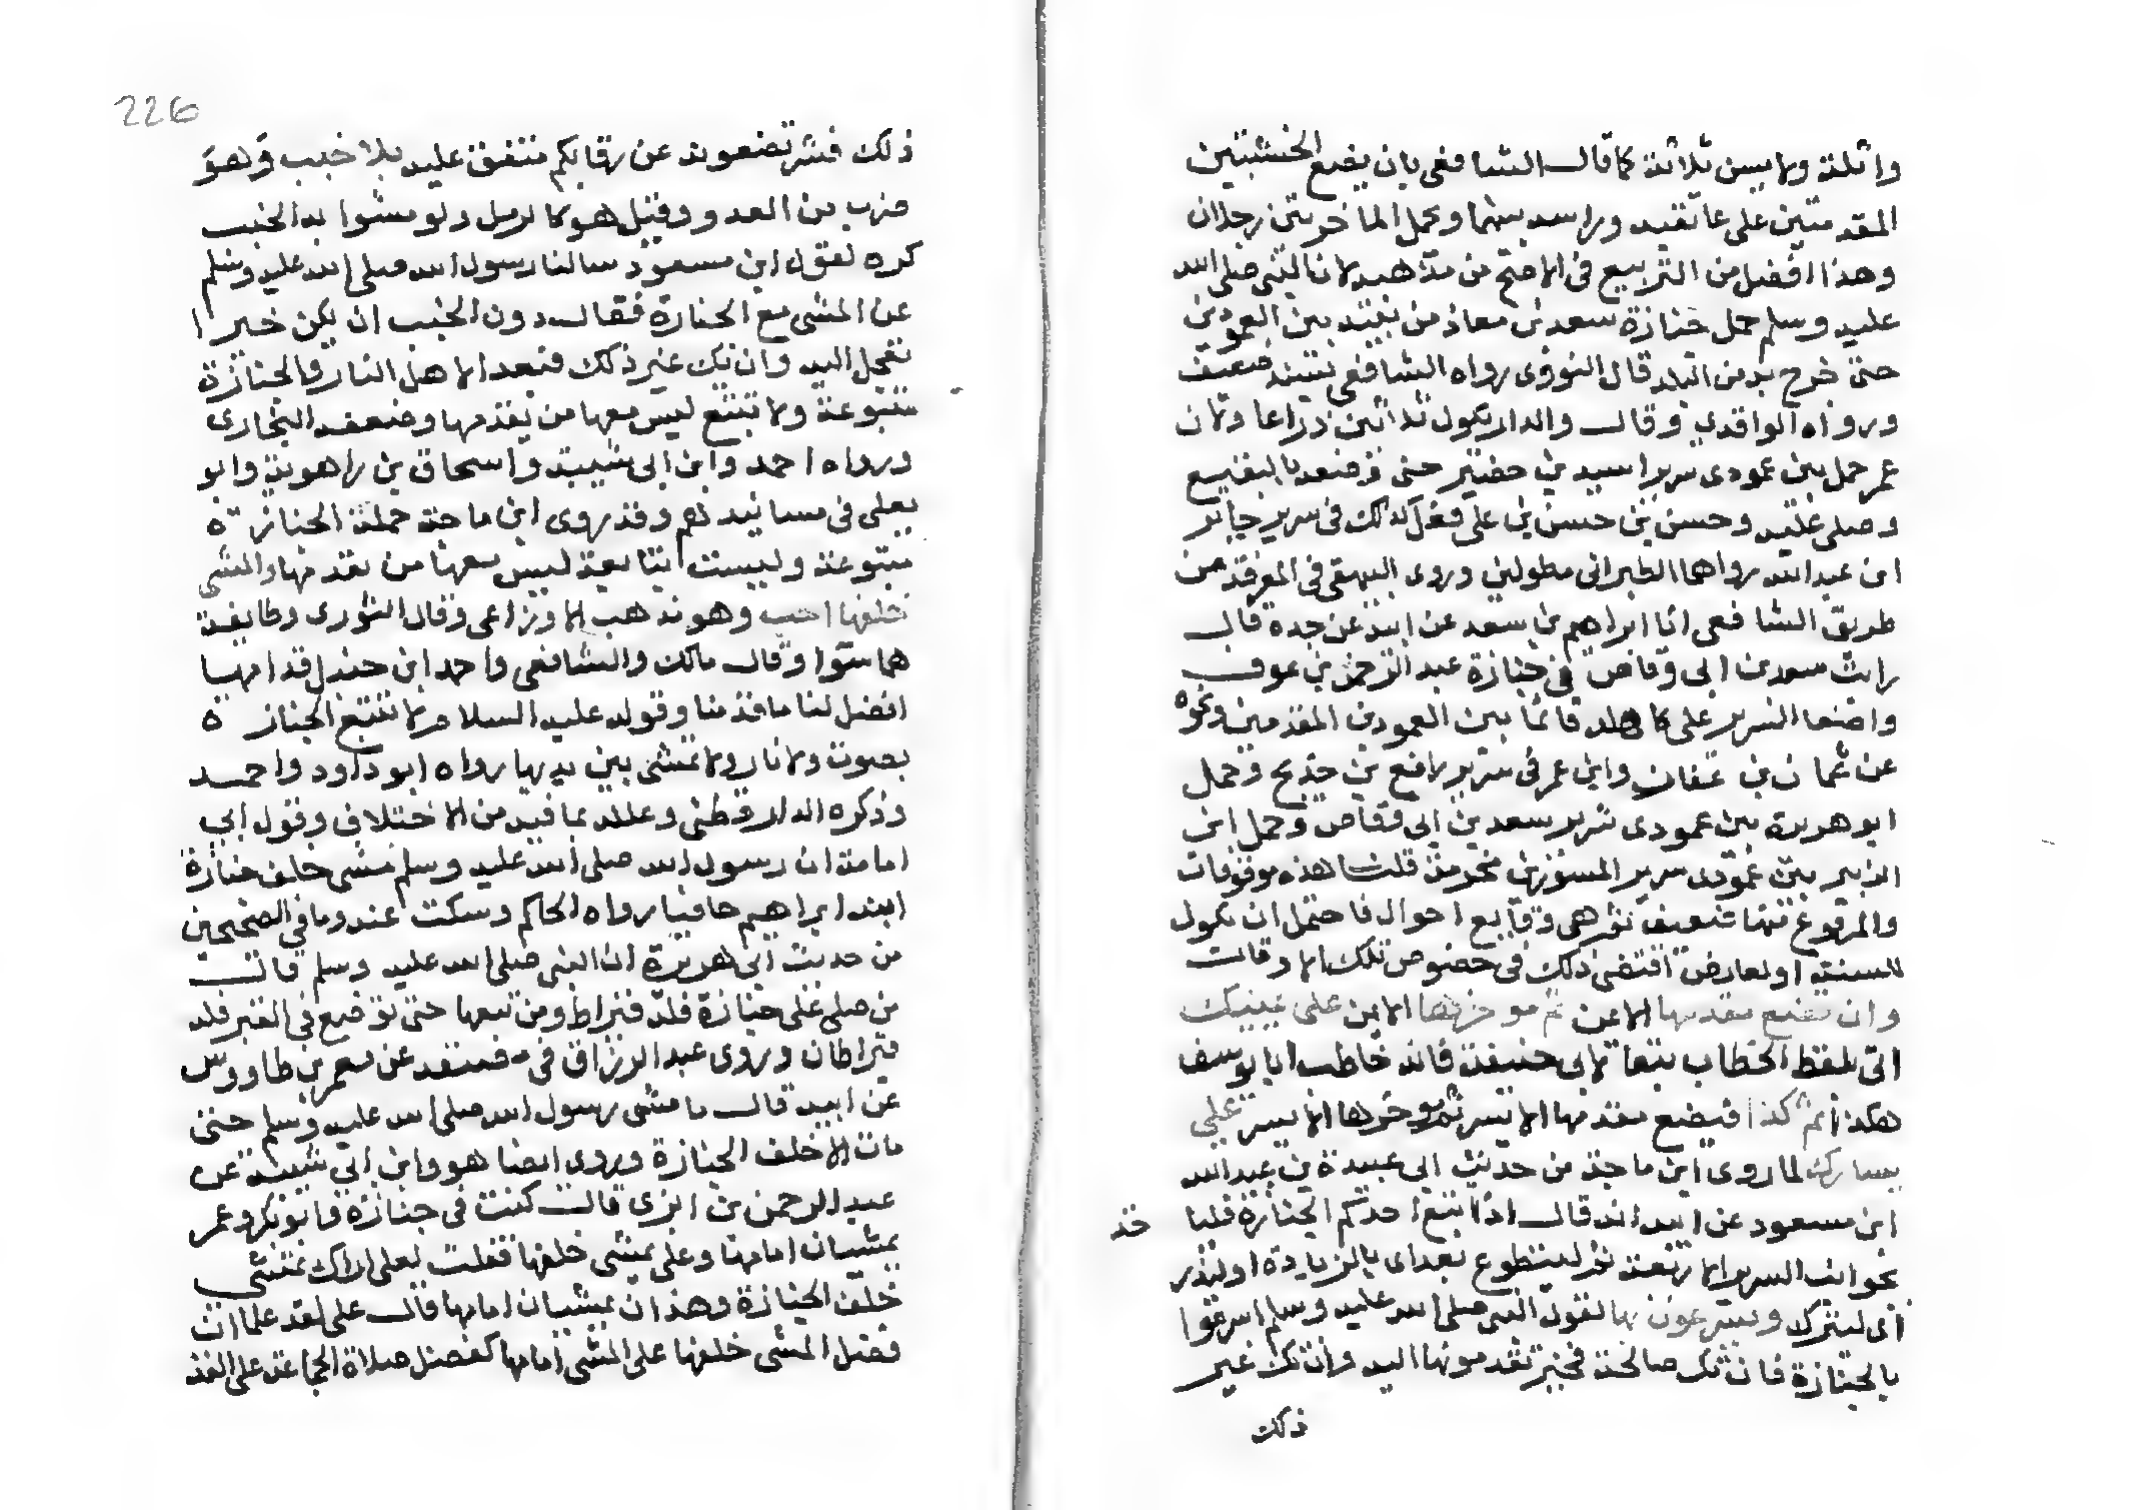 واثلة ولا يسن ثلاثة كما قال الشافعى بان يضع الخشبتين
المقدمتين على عاتقيه وراسه بينهما ويحمل الماخرتين رجلان
وهذا افضل من التربيع فى الاصح من مذهبه لان النبى صلى الله
عليه وسلم حمل جنازة سعد بن معاذ من بيته بين العمودين
حتى خرج به من الباب قال النووى رواه الشافعى بسند ضعيف
ورواه الواقدى وقال والدار يكون ثلاثين ذراعا ولان
عمر حمل بين عمودى سرير اسيد بن حضير حتى وضعه بالبقيع
وصلى عليه وحسن بن حسن بن على فعل كذلك فى سرير جابر
ابن عبد الله رواهما الطبرانى مطولين وروى البيهقى فى المعرفة من
طريق الشافعى انا ابراهيم بن سعد عن ابيه عن جده قال
رايت سعد بن ابى وقاص فى جنازة عبد الرحمن بن عوف
واضعا السرير على كاهله قائما بين العمودين المقدمين ونحوه
عن عثمان بن عفان وابن عمر فى سرير رافع بن خديج وحمل
ابو هريرة بين عمودى سرير سعد بن ابى وقاص وحمل ابن
الزبير بين عمودى سرير المسور بن مخرمة قلت هذه موقوفات
والمرفوع منها ضعيف ثم هى وقايع احوال فاحتمل ان يكون
للسنة او لعارض اقتضى ذلك فى خصوص تلك الاوقات
وان تضع مقدمها الايمن ثم موخرها الايمن على يمينك
اتى بلفظ الخطاب تبعا لابى حنيفة فانه خاطب ابا يوسف
هكذا ثم كذا فيضع مقدمها الايسر ثم موخرها الايسر على
يسارك لما روى ابن ماجة من حديث ابى عبيدة بن عبد الله
ابن مسعود عن ابيه انه قال اذا اتبع احدكم الجنازة فليا خذ
بجوانب السرير الاربعة ثم ليتطوع بعد اى بالزيادة او ليذر
اى ليترك ويسرعون بها لقول النبى صلى الله عليه وسلم اسرعوا
بالجنازة فان تك صالحة فخير تقدمونها اليه وان تك غير
ذلك
226
ذلك فشر تضعونه عن رقابكم متفق عليه بلا خبب وهو
ضرب من العدو وقيل هو كالرمل ولو مشوا به الخبب
كره لقول ابن مسعود سالنا رسول الله صلى الله عليه وسلم
عن المشى مع الجنازة فقال دون الخبب ان يكن خيرا
تعجل اليه وان يك غير ذلك فبعدا لاهل النار والجنازة
متبوعة ولا تتبع ليس معها من تقدمها وضعفه البخارى
ورواه احمد وابن ابى شيبة واسحاق بن راهوية وابو
يعلى فى مسانيدهم وقد روى ابن ماجة جملة الجنازة
متبوعة وليست بتابعة ليس معها من تقدمها والمشى
خلفها احب وهو مذهب الاوزاعى وقال الثورى وطايفة
هما سوا وقال مالك والشافعى واحمد ابن حنبل قدامها
افضل لنا ما قدمنا وقوله عليه السلام لا تتبع الجنازة
بصوت ولا نار ولا تمشى بين يديها رواه ابو داود واحمد
وذكره الدارقطنى وعلله بما فيه من الاختلاف وقول ابى
امامة ان رسول الله صلى الله عليه وسلم مشى خلف جنازة
ابنه ابراهيم حافيا رواه الحاكم وسكت عنه وما فى الصحيحين
من حديث ابى هريرة ان النبى صلى الله عليه وسلم قال
من صلى على جنازة فله قيراط ومن تبعها حتى توضع فى القبر فله
قيراطان وروى عبد الرزاق فى مصنفه عن معمر بن طاووس
عن ابيه قال ما مشى رسول الله صلى الله عليه وسلم حتى
مات الا خلف الجنازة وروى ايضا هو وابن ابى شيبة عن
عبد الرحمن بن ابزى قال كنت فى جنازة وابو بكر وعمر
يمشيان امامها وعلى يمشى خلفها فقلت لعلى اراك تمشى
خلف الجنازة وهذان يمشيان امامها قال على لقد علما ان
فضل المشى خلفها على المشى امامها كفضل صلاة الجماعة على الفذ